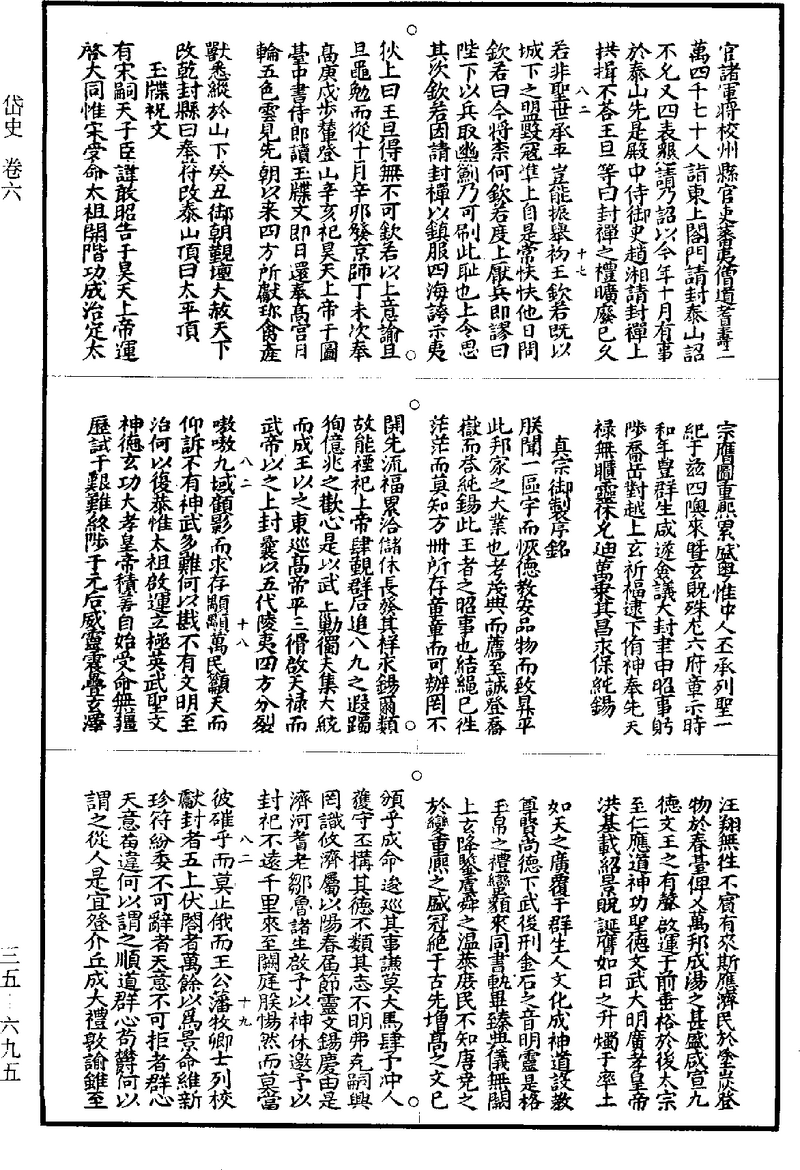 岱史 卷六
三五—六九五
官諸軍將校州縣官吏蕃夷僧道耆壽二
萬四千七十人詣東上閤門請封泰山詔
不允又四表懇請乃詔以今年十月有事
於泰山先是殿中侍御史趙湘請封禪上
拱揖不荅王旦等曰封禪之禮曠廢已久
八二
十七
若非聖世承平豈能振舉初王欽若既以
城下之盟毀寇準上自是常怏怏他日問
欽若曰今將柰何欽若度上厭兵即謬曰
陛下以兵取幽薊乃可刷此恥也上令思
其次欽若因請封禪以鎮服四海誇示夷
狄上曰王旦得無不可欽若以上意諭旦
旦黽勉而從十月辛卯發京師丁未次奉
高庚戌步輦登山辛亥祀昊天上帝于圜
臺中書侍郎讀玉牒文即日還奉高宮日
輪五色雲見先朝以来四方所獻珎禽產
獸悉縱於山下癸丑御朝覲壇大赦天下
改乾封縣曰奉符改泰山頂曰太平頂
玉牒祝文
有宋嗣天子臣諱敢昭告于昊天上帝運
啓大同惟宋受命太祖開階功成治定太
宗膺圖重熙累盛粵惟中人丕承列聖一
紀于茲四隩來暨玄貺殊尤六府章示時
和年豊群生咸遂僉議大封聿申昭事躬
陟喬岳對越上玄祈福逮下侑神奉先天
祿無疆靈休允迪萬乘其昌永保純錫
真宗御製序銘
朕聞一區宇而恢德教安品物而致昇平
此邦家之大業也考茂典而薦至誠登喬
嶽而荅純錫此王者之昭事也結繩已徃
茫茫而莫知方冊所存章章而可辦罔不
開先流福累洽儲休長發其祥永錫爾類
故能禋祀上帝肆覲群后追八九之遐躅
徇億兆之歡心是以武上勦獨夫集大統
而成王以之東巡高帝平三猾啟天禄而
武帝以之上封曩以五代陵夷四方分裂
八二
十八
嗷嗷九域顧影而求存顒顒萬民籲天而
仰訴不有神武多難何以戡不有文明至
治何以復恭惟太祖啟運立極英武聖文
神德玄功大孝皇帝積善自始受命無疆
歷試于艱難終陟于元后威靈震疊玄澤
汪翔無徃不賓有來斯應濟民於塗炭登
物於春臺俾乂萬邦成湯之甚盛咸宣九
德文王之有聲啟運于前垂裕於後太宗
至仁應道神功聖德文武大明廣孝皇帝
洪基載紹景貺誕膺如日之升燭于率土
如天之廣覆于群生人文化成神道設教
尊賢尚德下武後刑金石之音明靈是格
玉帛之禮蠻貊來同書軌畢臻典儀無闕
上玄降鑒虞舜之溫恭庶民不知唐堯之
於變重熙之盛冠絶于古先增高之文已
頒乎成命逡巡其事謙莫大焉肆予冲人
獲守丕構其德不類其志不明弗克嗣興
罔識攸濟屬以陽春届節靈文錫慶由是
濟河耆老鄒魯諸生啟予以神休邀予以
封祀不遠千里來至闕庭朕惕然而莫當
八二
十九
彼確乎而莫止俄而王公藩牧卿士列校
獻封者五上伏閤者萬餘以爲景命維新
珍符紛委不可辭者天意不可拒者群心
天意苟違何以謂之順道群心苟欝何以
謂之從人是宜登介丘成大禮敦諭雖至